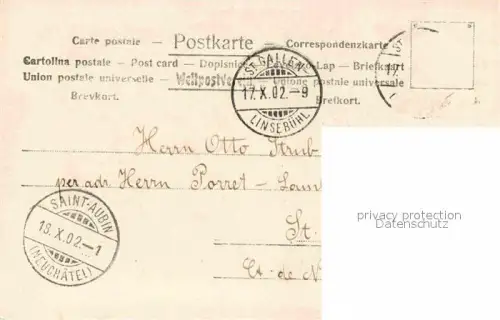 Carte postale — Postkarte — Correspondenzkarte
Cartolina postale — Post card — Dopisnice — Lap — Briefkaart
Union postale universelle — Weltpostverein — Unione postale universale
Brevkort. Brefkort.
ST. GALLEN
17.X.02.-9
LINSEBÜHL
Herrn Otto Strub
per adr. Herrn Porret —
St.
Ct. de N
SAINT-AUBIN
18.X.02.-1
(NEUCHÂTEL)
privacy protection
Datenschutz